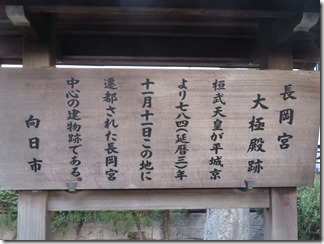 長岡宮
大極殿跡
桓武天皇が平城京
より七八四(延暦三)年
十一月十一日この地に
遷都された長岡宮
中心の建物跡である。
向日市